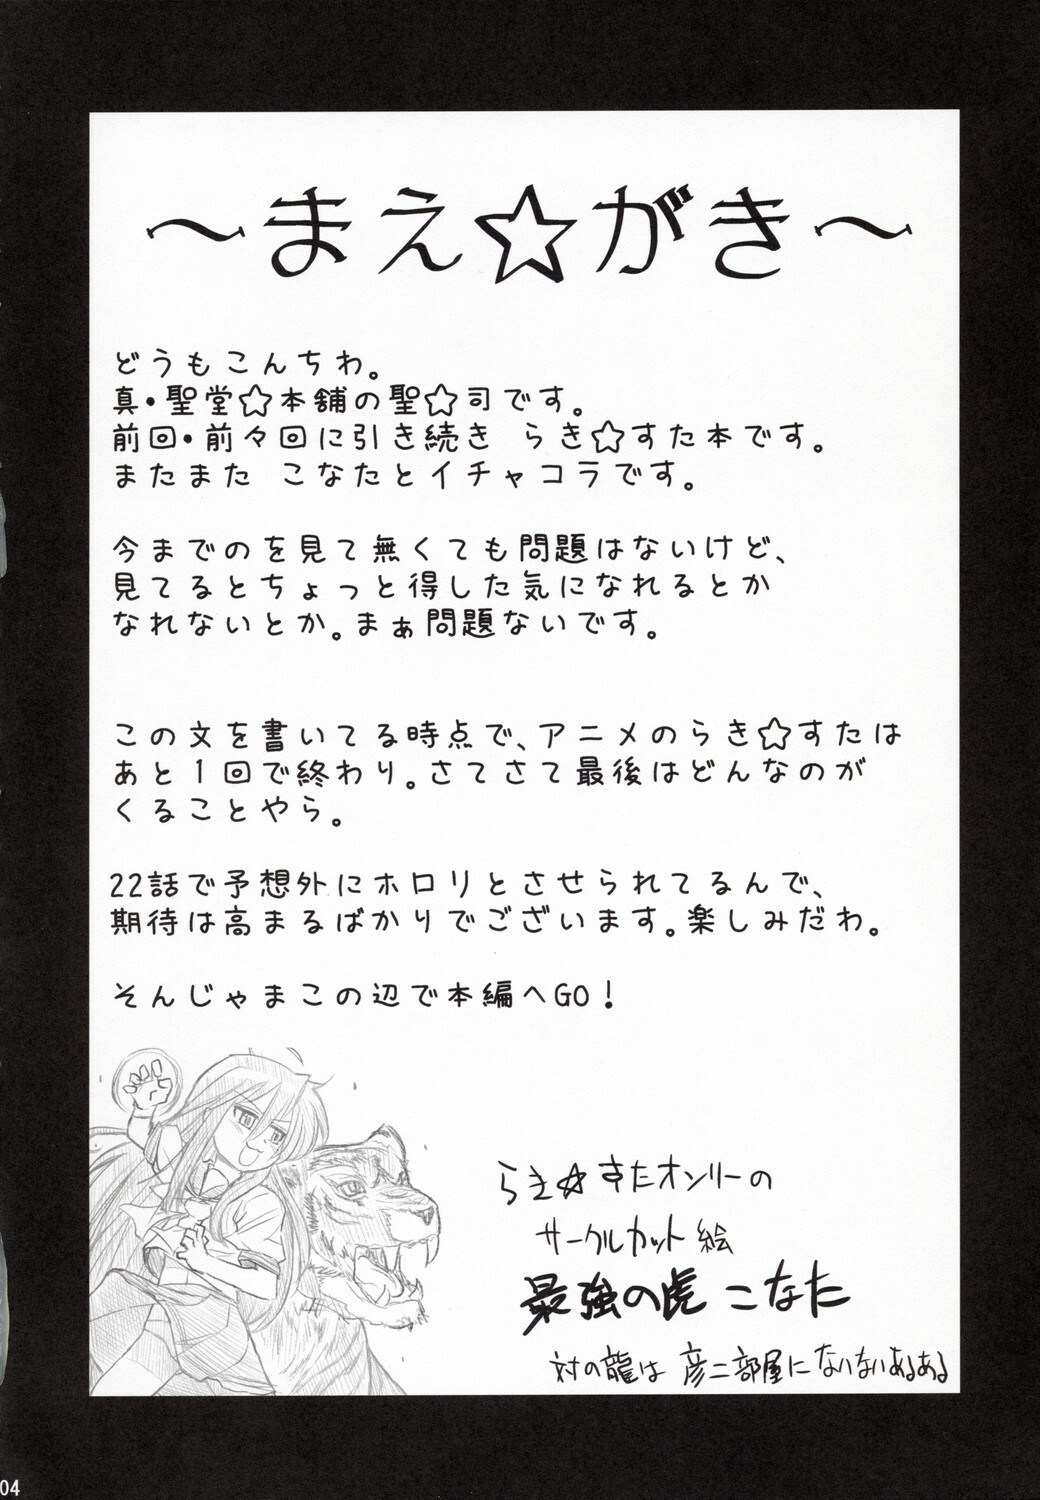 ～まえ☆がき～
どうもこんちわ。
真・聖堂☆本舗の聖☆司です。
前回・前々回に引き続き らき☆すた本です。
またまた こなたとイチャコラです。
今までのを見て無くても問題はないけど、
見てるとちょっと得した気になれるとか
なれないとか。まぁ問題ないです。
この文を書いてる時点で、アニメのらき☆すたは
あと1回で終わり。さてさて最後はどんなのが
くることやら。
22話で予想外にホロリとさせられてるんで、
期待は高まるばかりでございます。楽しみだわ。
そんじゃまこの辺で本編へGO！
らき☆すたオンリーの
サークルカット絵
最強の虎 こなた
対の龍は 彦二部屋にないないあるある
04